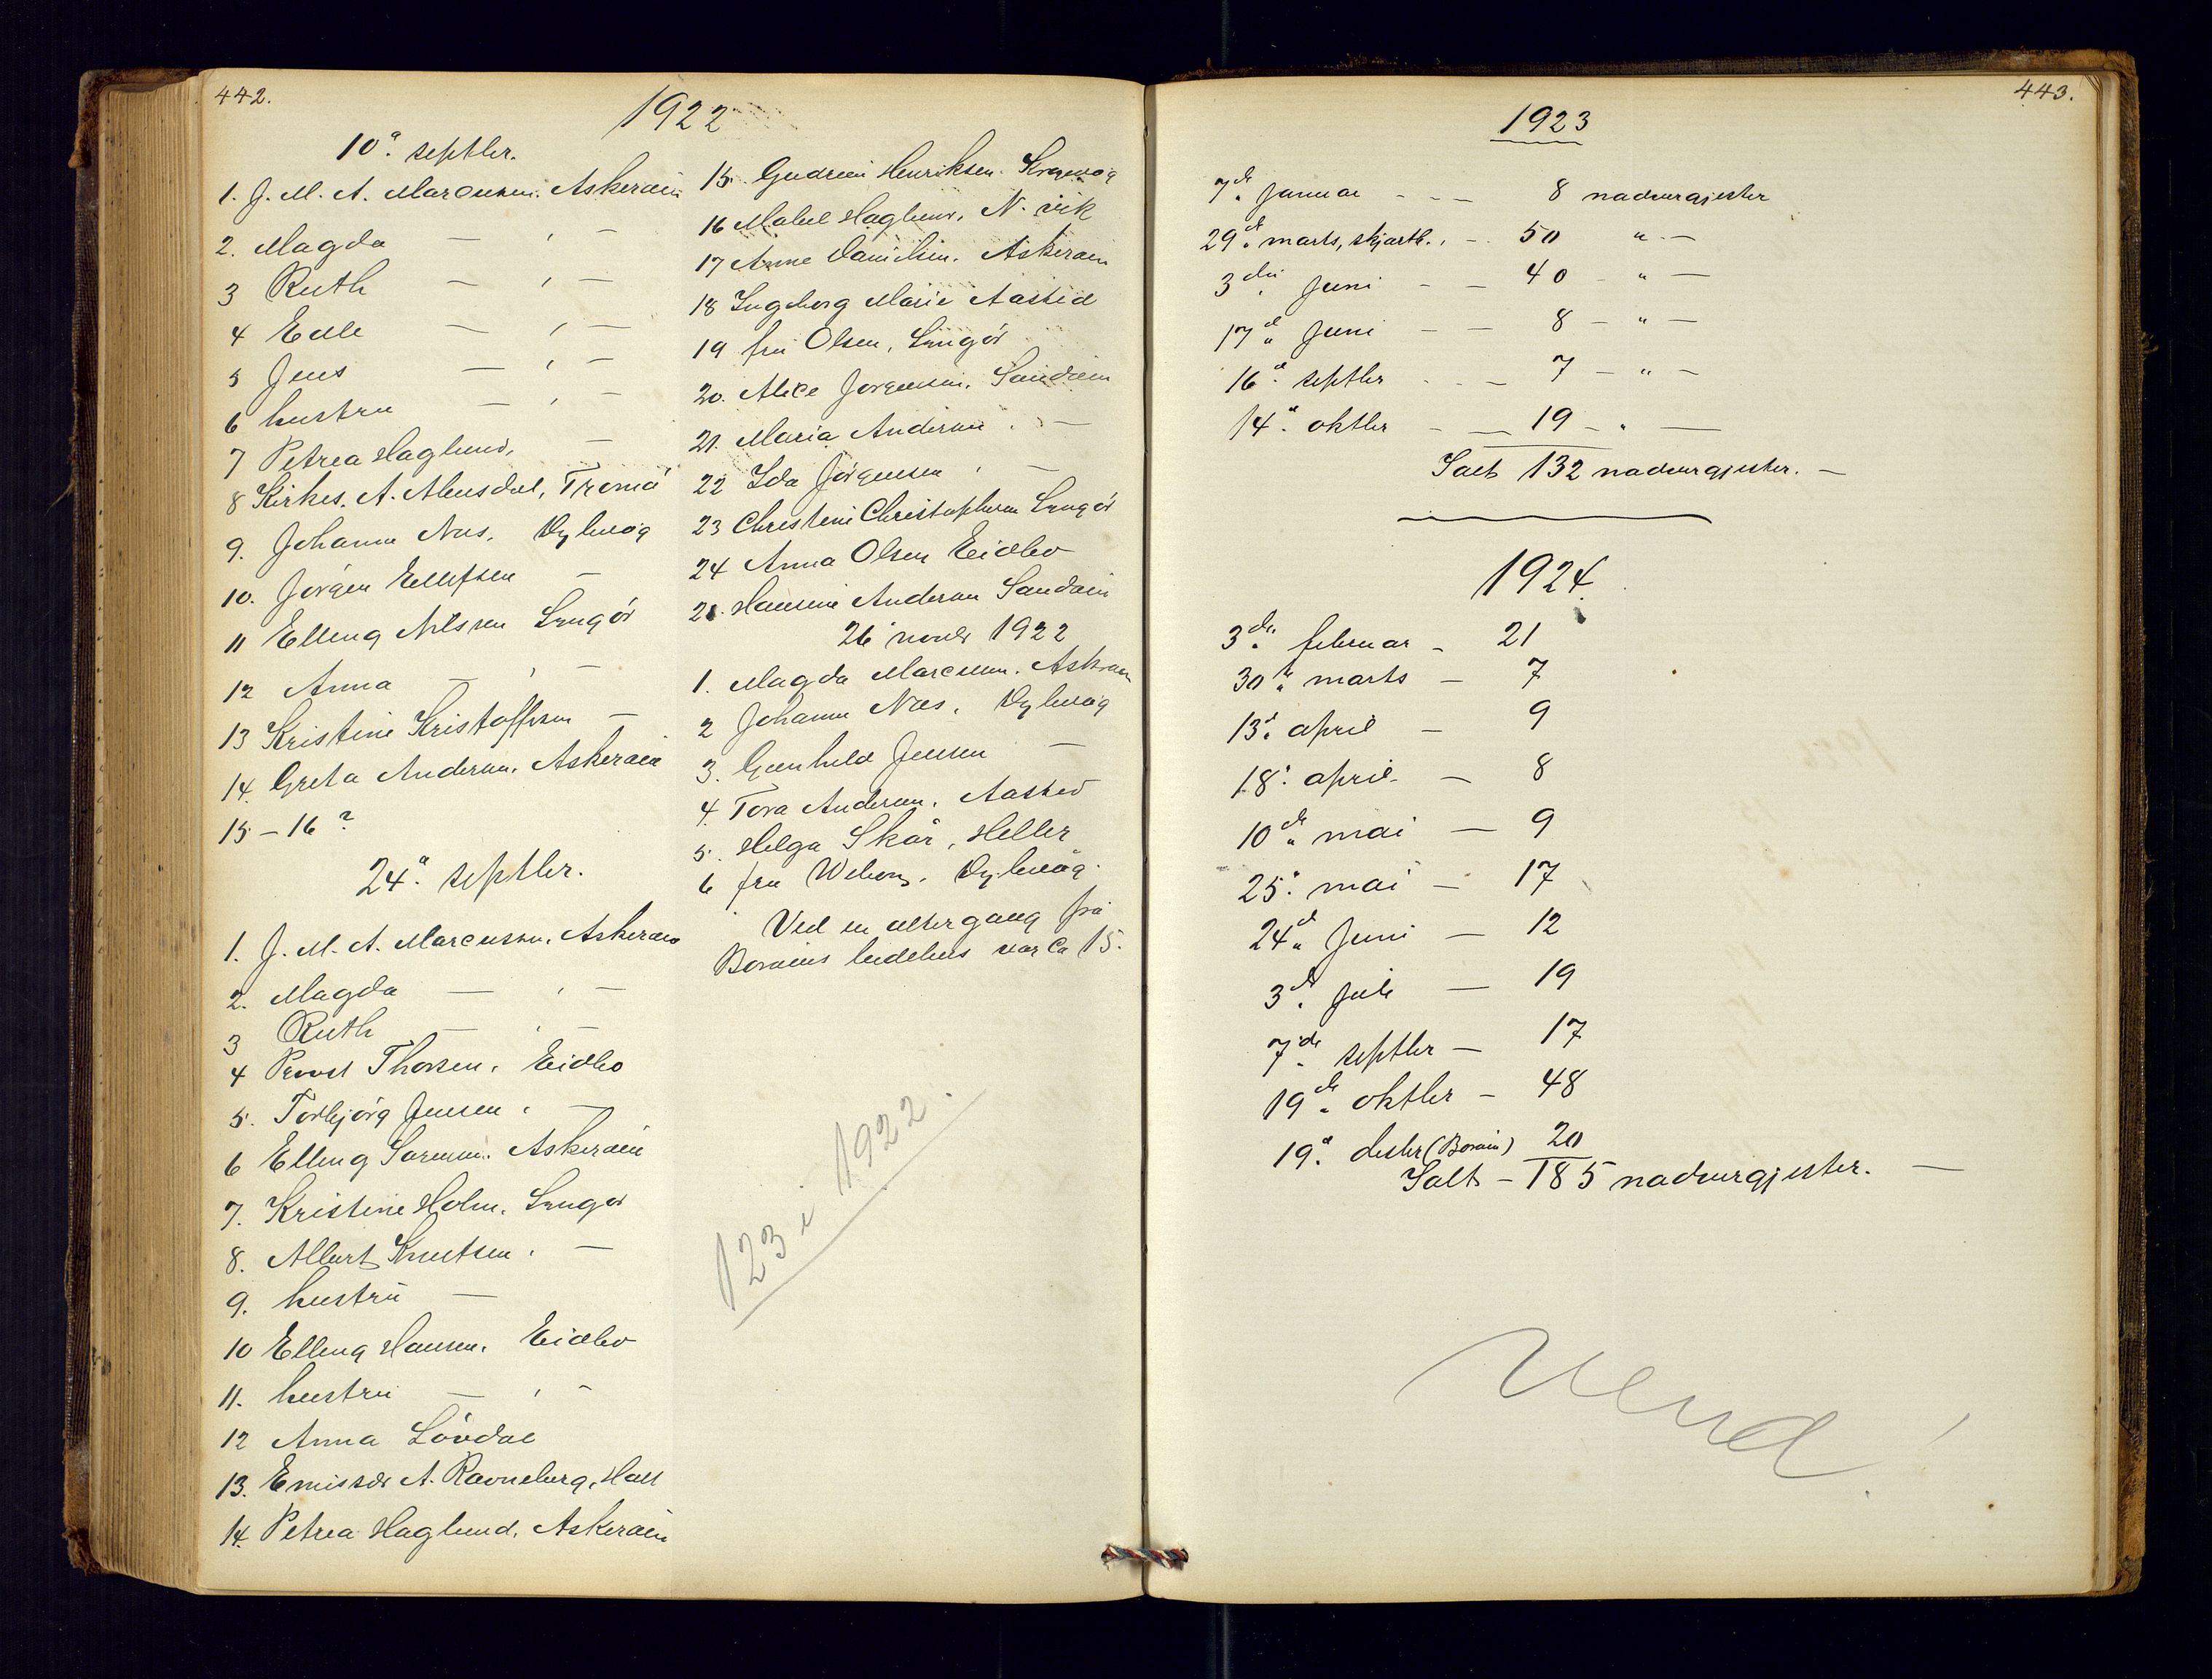 442.
1922
10de septbr.
1. J. M. A. Marcussen. Askerøien
2. Magda — , —
3 Ruth — , —
4 Edle — , —
5 Jens — , —
6 hustru — , —
7 Petrea Haglund, —
8 Kirkes. A. Alvusdal, Tromö
9. Johanne Næs, Dybvåg
10. Jörgen Ellefsen —
11 Elling Nilsen Lyngör
12 Anna — , —
13 Kristine Kristoffersen —
14. Greta Andersen. Askeröien
15–16 ?
24de septbr.
1. J. M. A. Marcussen, Askeröien
2. Magda — , —
3 Ruth — , —
4 Provst Thorsen, Eidbo
5. Torbjörg Jensen , —
6 Elling Sörensen. Askeröien
7. Kristine Holm. Lyngör
8. Albert Knutsen , —
9. hustru —
10 Elling Hansen. Eidbo
11. hustru — , —
12 Anna Lövdal
13. Emissær A. Ravneberg, Holt
14. Petrea Haglund, Askeröien
15. Gudrun Henriksen.
16 Mabel Haglund, N. vik
17 Anne Danielsen. Askeröien
18 Ingeborg Marie Aasted
19 fru Olsen, Lyngör
20. Alice Jörgensen, Sandöien
21. Maria Andersen , —
22 Ida Jörgensen , —
23 Christine Christophersen Lyngör
24 Anna Olsen Eidbo
21. Hansine Andersen Sandöien
26 novbr 1922
1. Magda Marcussen. Askeröien
2 Johanne Næs, Dybvåg
3. Gunhild Jensen —
4. Tora Andersen, Aasted
5. Helga Skår, Heller
6 fru Weberg, Dybvåg.
Ved en altergang på
Boröiens bedehus var ca 15.
123 i 1922.
443.
1923
7de Januar - - - 8 nadvergjester
29de marts, skjærtt. , - 50 " —
3die Juni - - 40 - " —
17de Juni - - 8 - " —
16de septbr - - 7 - " -
14de oktbr - — 19 - " —
Ialt 132 nadvergjester. —
1924.
3die februar - 21
30te marts - 7
13de april - 9
18de april - 8
10de mai — 9
25de mai — 17
24de Juni — 12
3die Juli — 19
7de septbr — 17
19de oktbr - 48
19de desbr (Boröien) 20
Ialt – 185 nadvergjester. —
Vend!